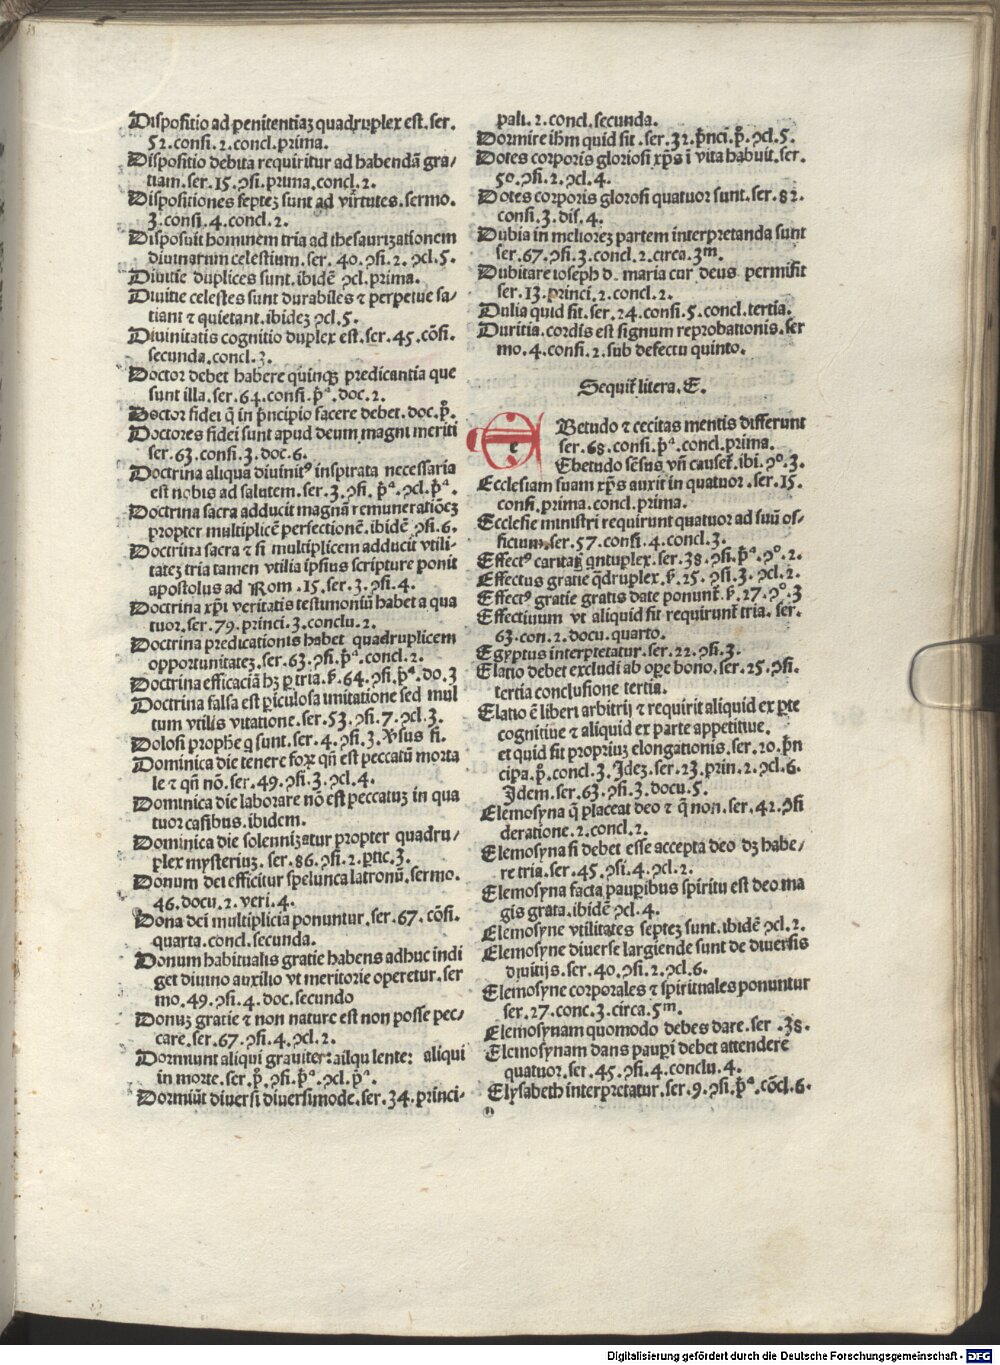 Dispositio ad penitentiaꝫ quadruplex est. ser.
52. consi. 2. concl. prima.
Dispositio debita requiritur ad habendā gra/
tiam. ser. 15. ꝯsi. prima. concl. 2.
Dispositiones septeꝫ sunt ad virtutes. sermo.
3. consi. 4. concl. 2.
Disposuit hominem tria ad thesaurizationem
diuinarum celestium. ser. 40. ꝯsi. 2. ꝯcl. 5.
Diuitie duplices sunt. ibidē ꝯcl. prima.
Diuitie celestes sunt durabiles ⁊ perpetue sa/
tiant ⁊ quietant. ibideꝫ ꝯcl. 5.
Diuinitatis cognitio duplex est. ser. 45. cōsi.
secunda. concl. 3.
Doctor debet habere quinqꝫ predicantia que
sunt illa. ser. 64. consi. p̄ᵃ. doc. 2.
Doctor fidei q̄ in p̄ncipio facere debet. doc. p̊.
Doctores fidei sunt apud deum magni meriti
ser. 63. consi. 3. doc. 6.
Doctrina aliqua diuinitꝰ inspirata necessaria
est nobis ad salutem. ser. 3. ꝯsi. p̄ᵃ. ꝯcl. p̄ᵃ.
Doctrina sacra adducit magnā remuneratiōeꝫ
propter multiplicē perfectionē. ibidē ꝯsi. 6.
Doctrina sacra ⁊ si multiplicem adducit vtili-
tateꝫ tria tamen vtilia ipsius scripture ponit
apostolus ad Rom. 15. ser. 3. ꝯsi. 4.
Doctrina xp̄i veritatis testimoniū habet a qua
tuor. ser. 79. princi. 3. conclu. 2.
Doctrina predicationis habet quadruplicem
opportunitateꝫ. ser. 63. ꝯsi. p̄ᵃ. concl. 2.
Doctrina efficaciā hꝫ ꝑ tria. ẜ. 64. ꝯsi. p̄ᵃ. do. 3
Doctrina falsa est ꝑiculosa imitatione sed mul
tum vtilis vitatione. ser. 53. ꝯsi. 7. ꝯcl. 3.
Dolosi prophe q̄ sunt. ser. 4. ꝯsi. 3. ꝟsus fi.
Dominica die tenere foꝝ qn̄ est peccatū morta
le ⁊ qn̄ nō. ser. 49. ꝯsi. 3. ꝯcl. 4.
Dominica die laborare nō est peccatuꝫ in qua
tuor casibus. ibidem.
Dominica die solennizatur propter quadru/
plex mysteriuꝫ. ser. 86. ꝯsi. 2. ꝑtic. 3.
Donum dei efficitur spelunca latronū. sermo.
46. docu. 2. veri. 4.
Dona dei multiplicia ponuntur. ser. 67. cōsi.
quarta. concl. secunda.
Donum habitualis gratie habens adhuc indi
get diuino auxilio vt meritorie operetur. ser
mo. 49. ꝯsi. 4. doc. secundo
Donuꝫ gratie ⁊ non nature est non posse pec/
care. ser. 67. ꝯsi. 4. ꝯcl. 2.
Dormiunt aliqui grauiter: aliqui lente: aliqui
in morte. ser. p̊. ꝯsi. p̄ᵃ. ꝯcl. p̄ᵃ.
Dormiūt diuersi diuersimode. ser. 34. princi-
pali. 2. concl. secunda.
Dormire ih̄m quid sit. ser. 32. p̄nci. p̊. ꝯcl. 5.
Dotes corporis gloriosi xp̄s ī vita habuit. ser.
50. ꝯsi. 2. ꝯcl. 4.
Dotes corporis glorosi quatuor sunt. ser. 82.
consi. 3. dis. 4.
Dubia in melioreꝫ partem interpretanda sunt
ser. 67. ꝯsi. 3. concl. 2. circa. 3ᵐ.
Dubitare ioseph d. maria cur deus permisit
ser. 13. princi. 2. concl. 2.
Dulia quid sit. ser. 24. consi. 5. concl. tertia.
Duritia. cordis est signum reprobationis. ser
mo. 4. consi. 2. sub defectu quinto.
Sequit̄ litera. E.
eBetudo ⁊ cecitas mentis differunt
ser. 68. consi. p̄ᵃ. concl. prima.
Ebetudo sēsus vn̄ causet̄. ibi. ꝯᵒ. 3.
Ecclesiam suam xp̄s auxit in quatuor. ser. 15.
consi. prima. concl. prima.
Ecclesie ministri requirunt quatuor ad suū of-
ficium. ser. 57. consi. 4. concl. 3.
Effectꝰ caritatꝭ qntuplex. ser. 38. ꝯsi. p̄ᵃ. ꝯᵒ. 2.
Effectus gratie q̄druplex. ẜ. 25. ꝯsi. 3. ꝯcl. 2.
Effectꝰ gratie gratis date ponunt̄. ẜ. 27. ꝯᵒ. 3
Effectiuum vt aliquid sit requirunt̄ tria. ser.
63. con. 2. docu. quarto.
Egyptus interpretatur. ser. 22. ꝯsi. 3.
Elatio debet excludi ab oꝑe bono. ser. 25. ꝯsi.
tertia conclusione tertia.
Elatio ē liberi arbitrij ⁊ requirit aliquid ex ꝑte
cognitiue ⁊ aliquid ex parte appetitiue.
et quid sit propriuꝫ elongationis. ser. 20. p̄n
cipa. p̊. concl. 3. Ideꝫ. ser. 23. prin. 2. ꝯcl. 6.
Idem. ser. 63. ꝯsi. 3. docu. 5.
Elemosyna q̄ placeat deo ⁊ q̄ non. ser. 42. ꝯsi
deratione. 2. concl. 2.
Elemosyna si debet esse accepta deo dꝫ habe/
re tria. ser. 45. ꝯsi. 4. ꝯcl. 2.
Elemosyna facta pauꝑibus spiritu est deo ma
gis grata. ibidē ꝯcl. 4.
Elemosyne vtilitates septeꝫ sunt. ibidē ꝯcl. 2.
Elemosyne diuerse largiende sunt de diuersis
diuitijs. ser. 40. ꝯsi. 2. ꝯcl. 6.
Elemosyne corporales ⁊ spirituales ponuntur
ser. 27. conc. 3. circa. 5ᵐ.
Elemosynam quomodo debes dare. ser. 38.
Elemosynam dans pauꝑi debet attendere
quatuor. ser. 45. ꝯsi. 4. conclu. 4.
Elysabeth interpretatur. ser. 9. ꝯsi. p̄ᵃ. cōcl. 6.
Digitalisierung gefördert durch die Deutsche Forschungsgemeinschaft - DFG